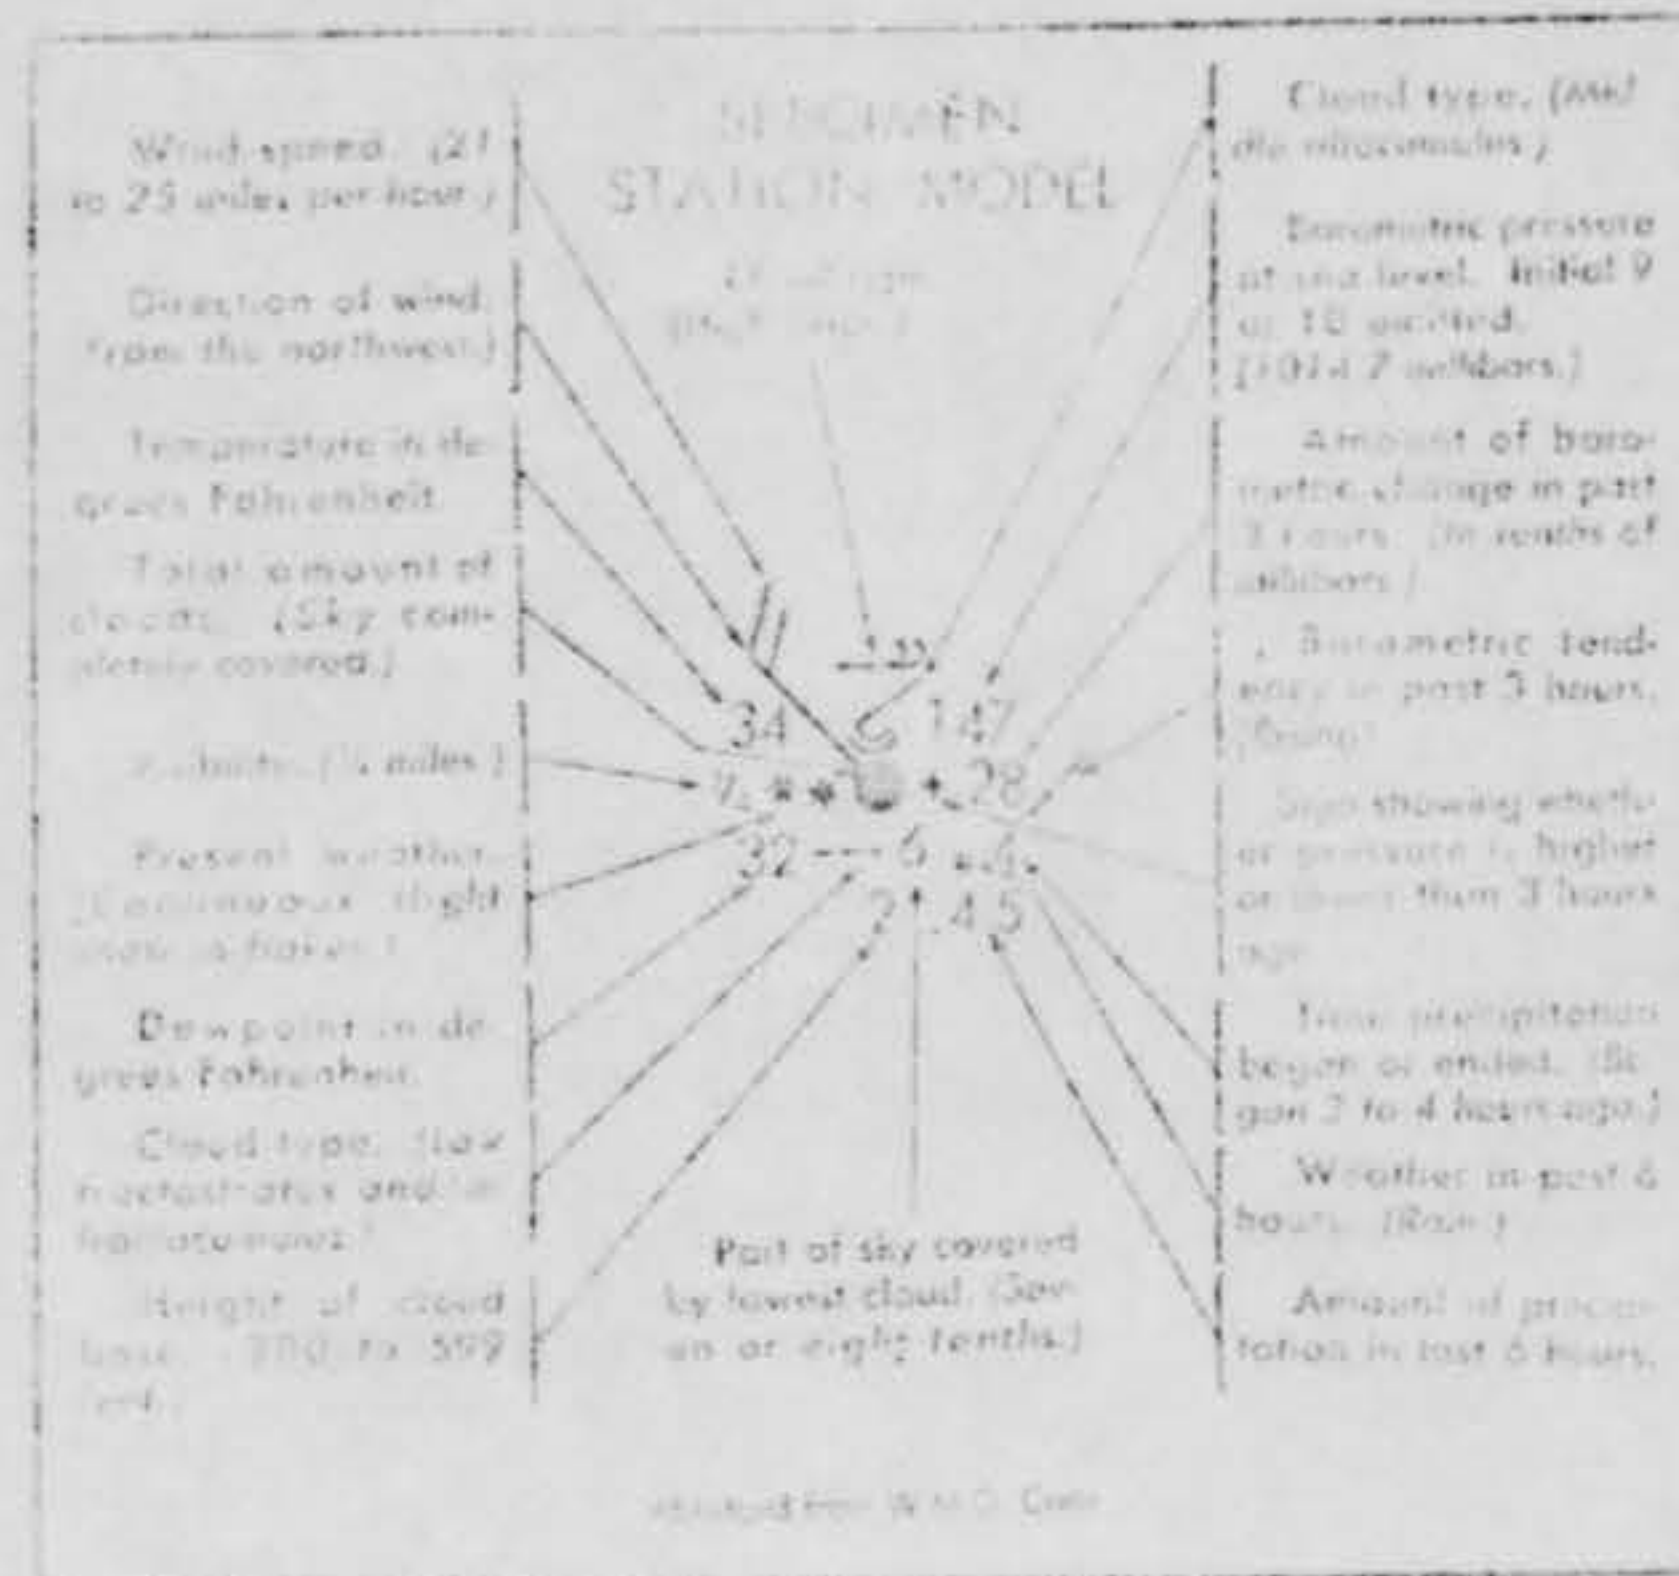 SPECIMEN
STATION MODEL
Wind speed. (21
to 25 miles per hour.)
Direction of wind.
from the northwest.)
Temperature in de-
grees Fahrenheit.
Total amount of
clouds. (Sky com-
pletely covered.)
Visibility. (¾ miles.)
Present weather.
(Continuous slight
snow in flakes.)
Dewpoint in de-
grees Fahrenheit.
Cloud type. (Low
fractostratus and/or
fractocumulus.)
Height of cloud
base. 300 to 599
feet.
34
147
28
32
6
2
.45
Part of sky covered
by lowest cloud. (Sev-
en or eight tenths.)
Cloud type. (Mid-
dle altocumulus.)
Barometric pressure
at sea level. Initial 9
or 10 omitted.
(1014.7 millibars.)
Amount of baro-
metric change in past
3 hours. (In tenths of
millibars.)
Barometric tend-
ency in past 3 hours.
Sign showing wheth-
er pressure is higher
or lower than 3 hours
ago.
Time precipitation
began or ended. (Be-
gan 3 to 4 hours ago.)
Weather in past 6
hours. (Rain.)
Amount of precipi-
tation in last 6 hours.
from W.M.O. Code